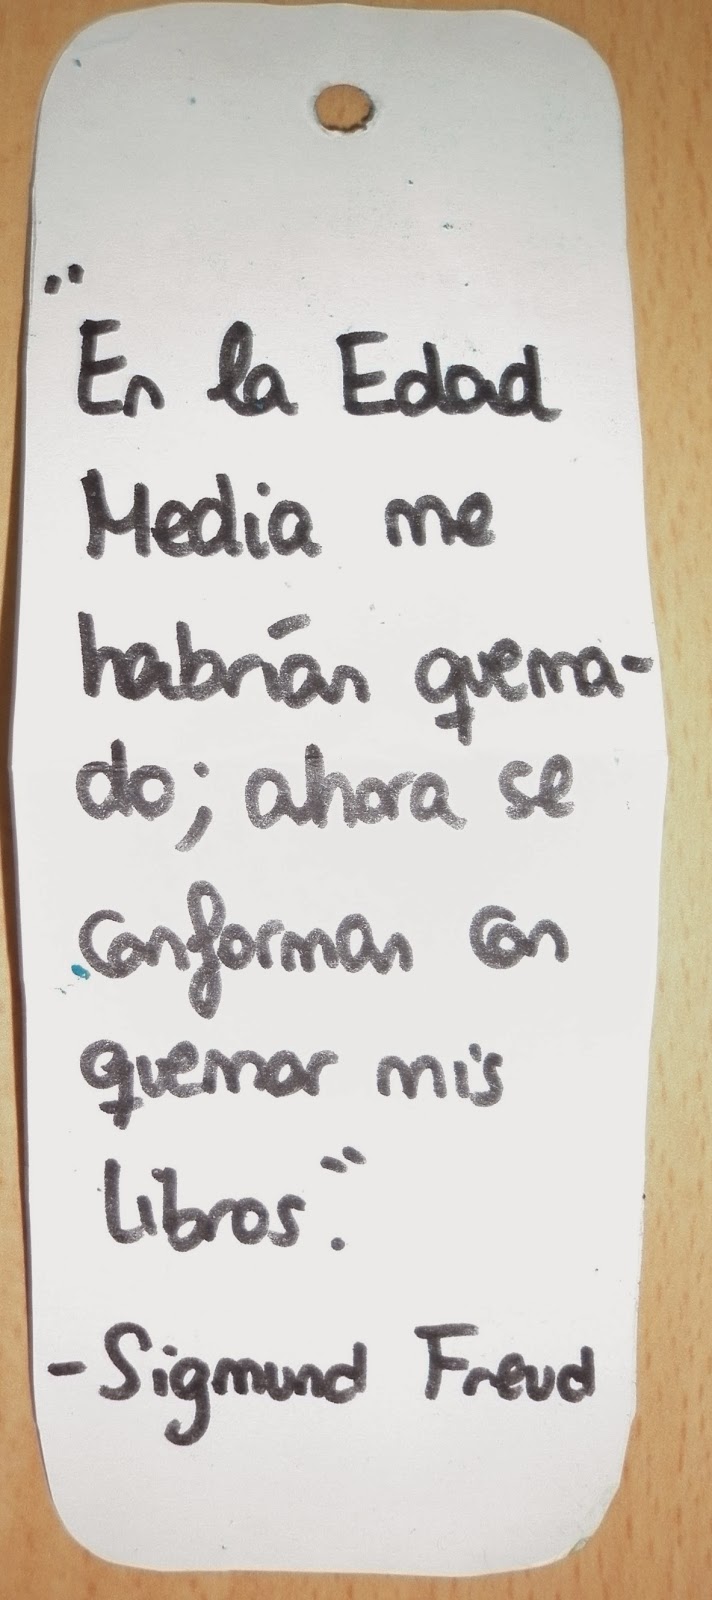 "En la Edad
Media me
habrían quema-
do; ahora se
conforman con
quemar mis
libros."
-Sigmund Freud